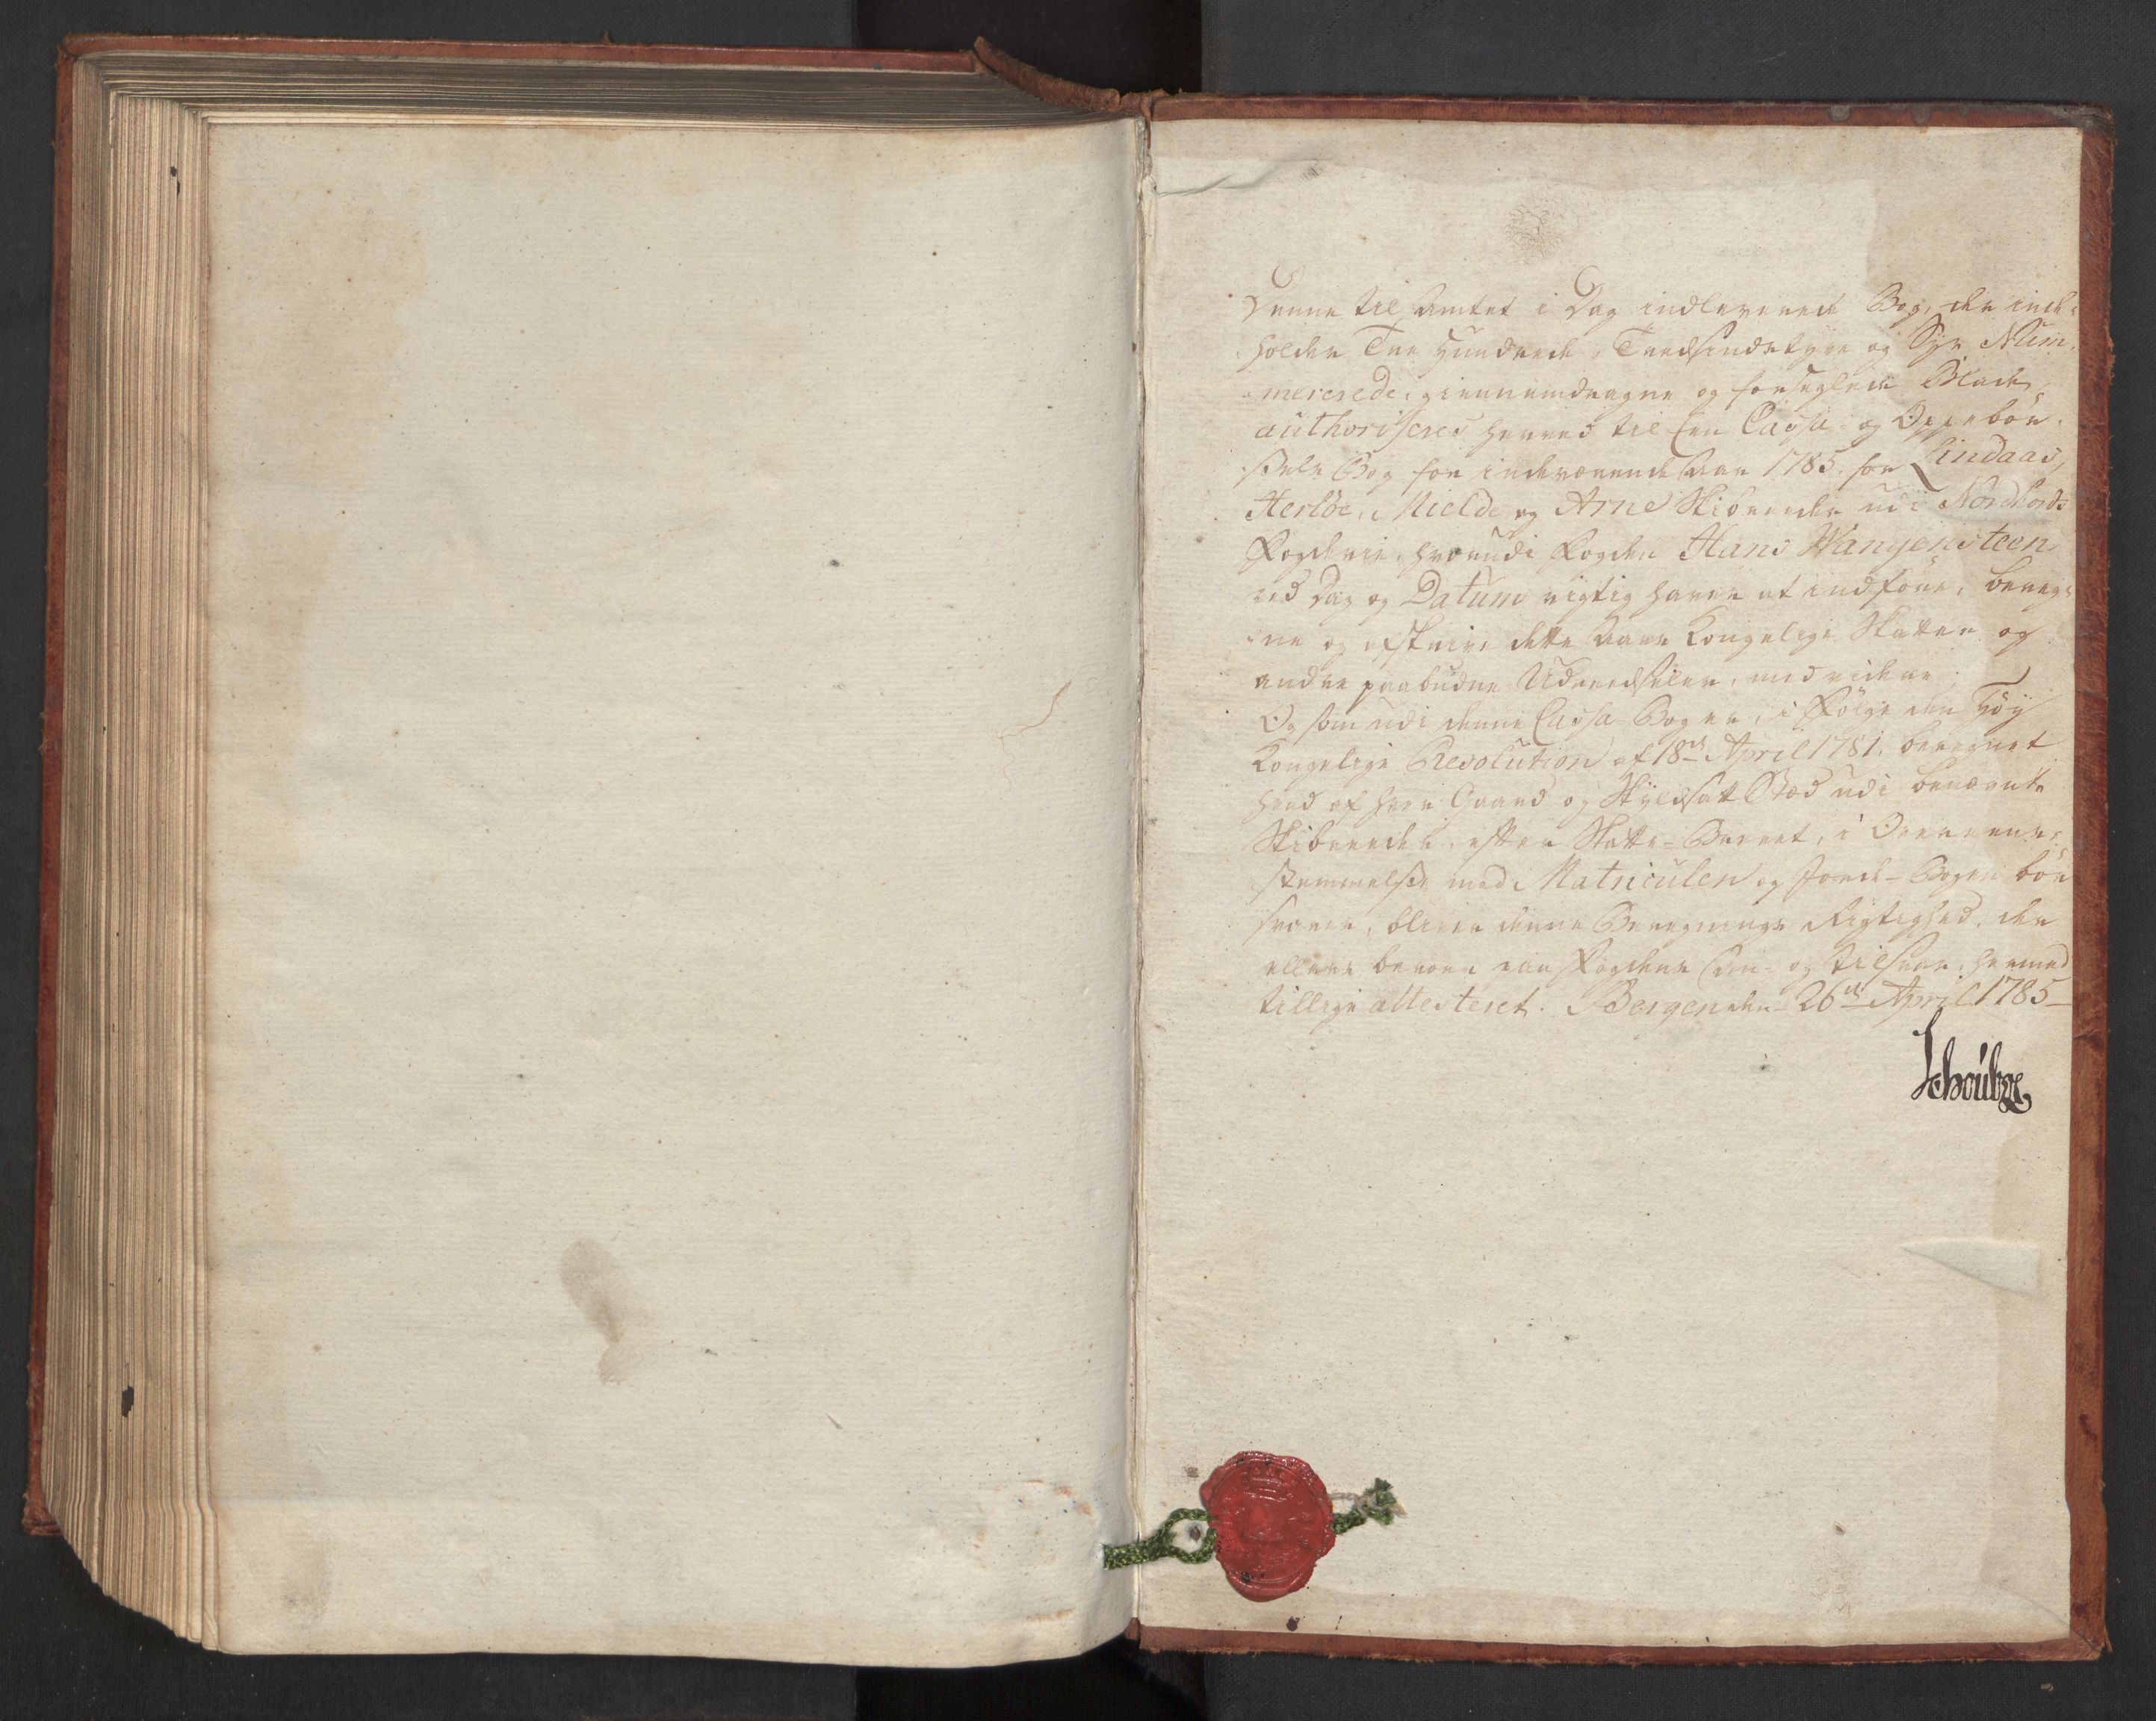 Denne til Amtet i Dag indleverede Bog, der inde-
holder Tre Hundrede, Tredsindstyve og Syv Num-
mererede, giennemdragne og forseglede Blade,
authoriseres herved til en Cassa- og Oppebør-
sels Bog for indeværende Aar 1785. for Lindaas,
Herløe, Mielde og Arne Skibreeder udi Nordhords
Fogderie, hvorudi Fogden Hans Wangensteen
ved Dag og Datum rigtig haver at indføre, bereg-
ne og afskrive dette Aars Kongelige Skatter og
andre paabudne Udreedseler, med videre;
Og som udi denne Cassa Bog er, i Følge den Høy
Kongelige Resolution af 18de April 1781. beregnet
hvad af hver Gaard og Skyldsatt Stæd udi benævnte
Skibreeder, efter Skatte-Burset, i Overeens-
stemmelse med Matriculen og Jorde-Bogen bør
svares, bliver denne Beregnings Rigtighed, der
ellers beroer paa Fogdens An- og tilsvar, hermed
tillige attesteret. Bergen den 26de April 1785
Schoubÿe